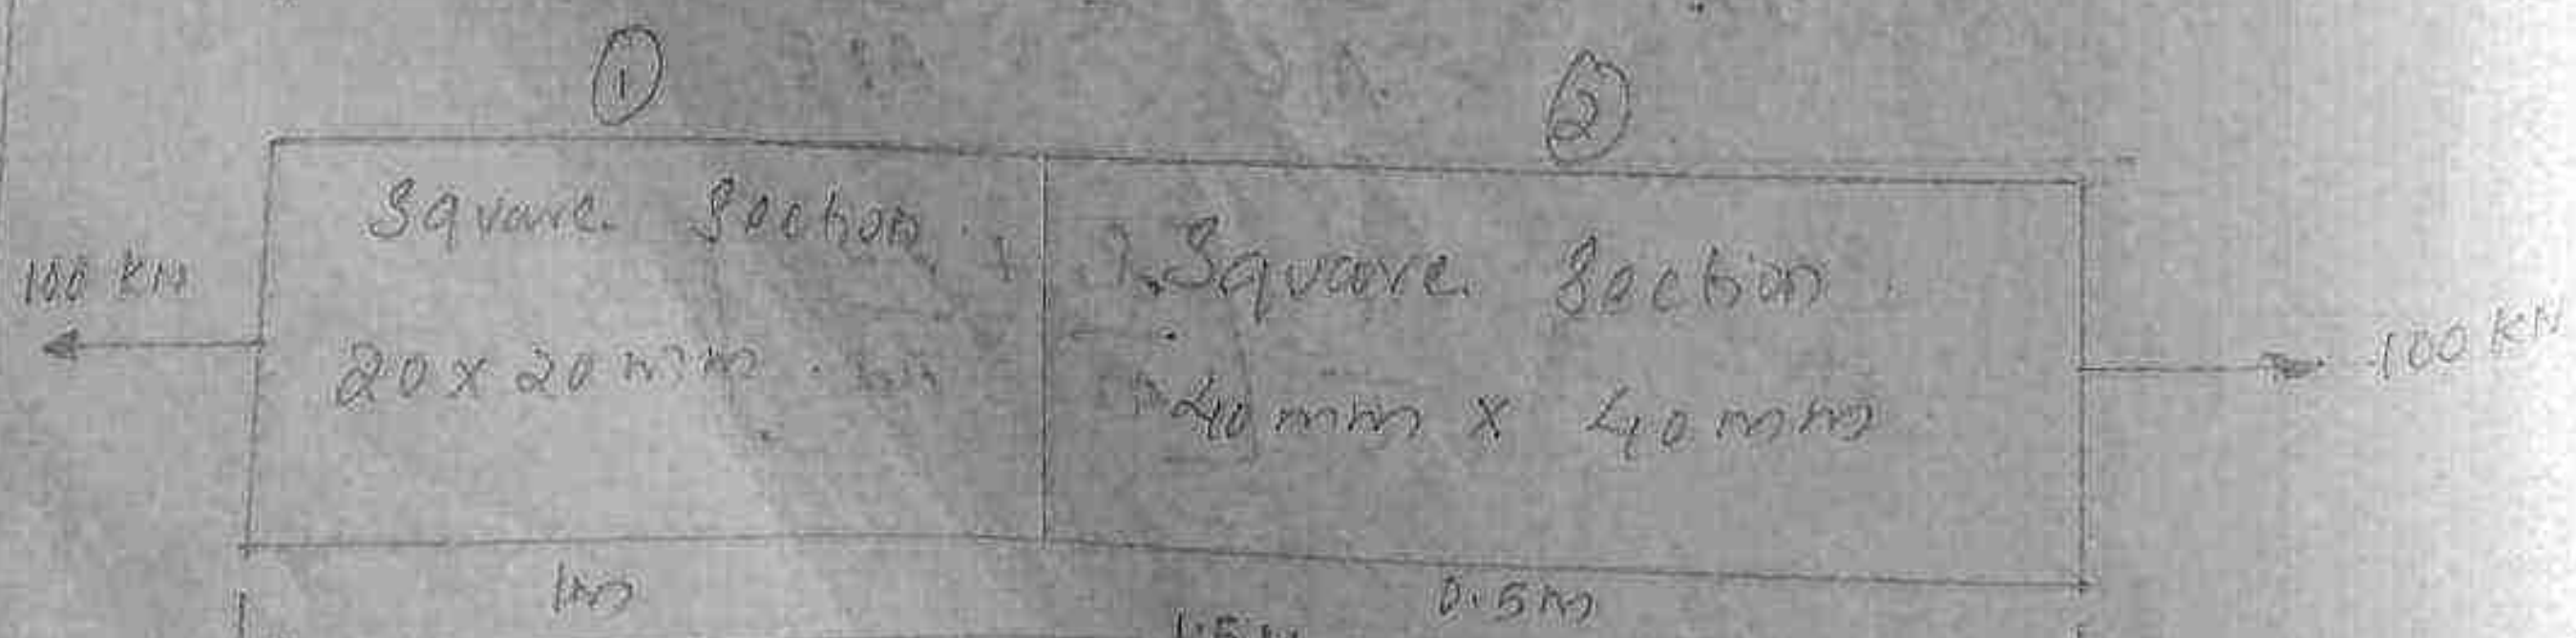 1
2
Square Section
20 x 20 mm
Square Section
40 mm x 40 mm
100 KN
100 KN
1m
0.5m